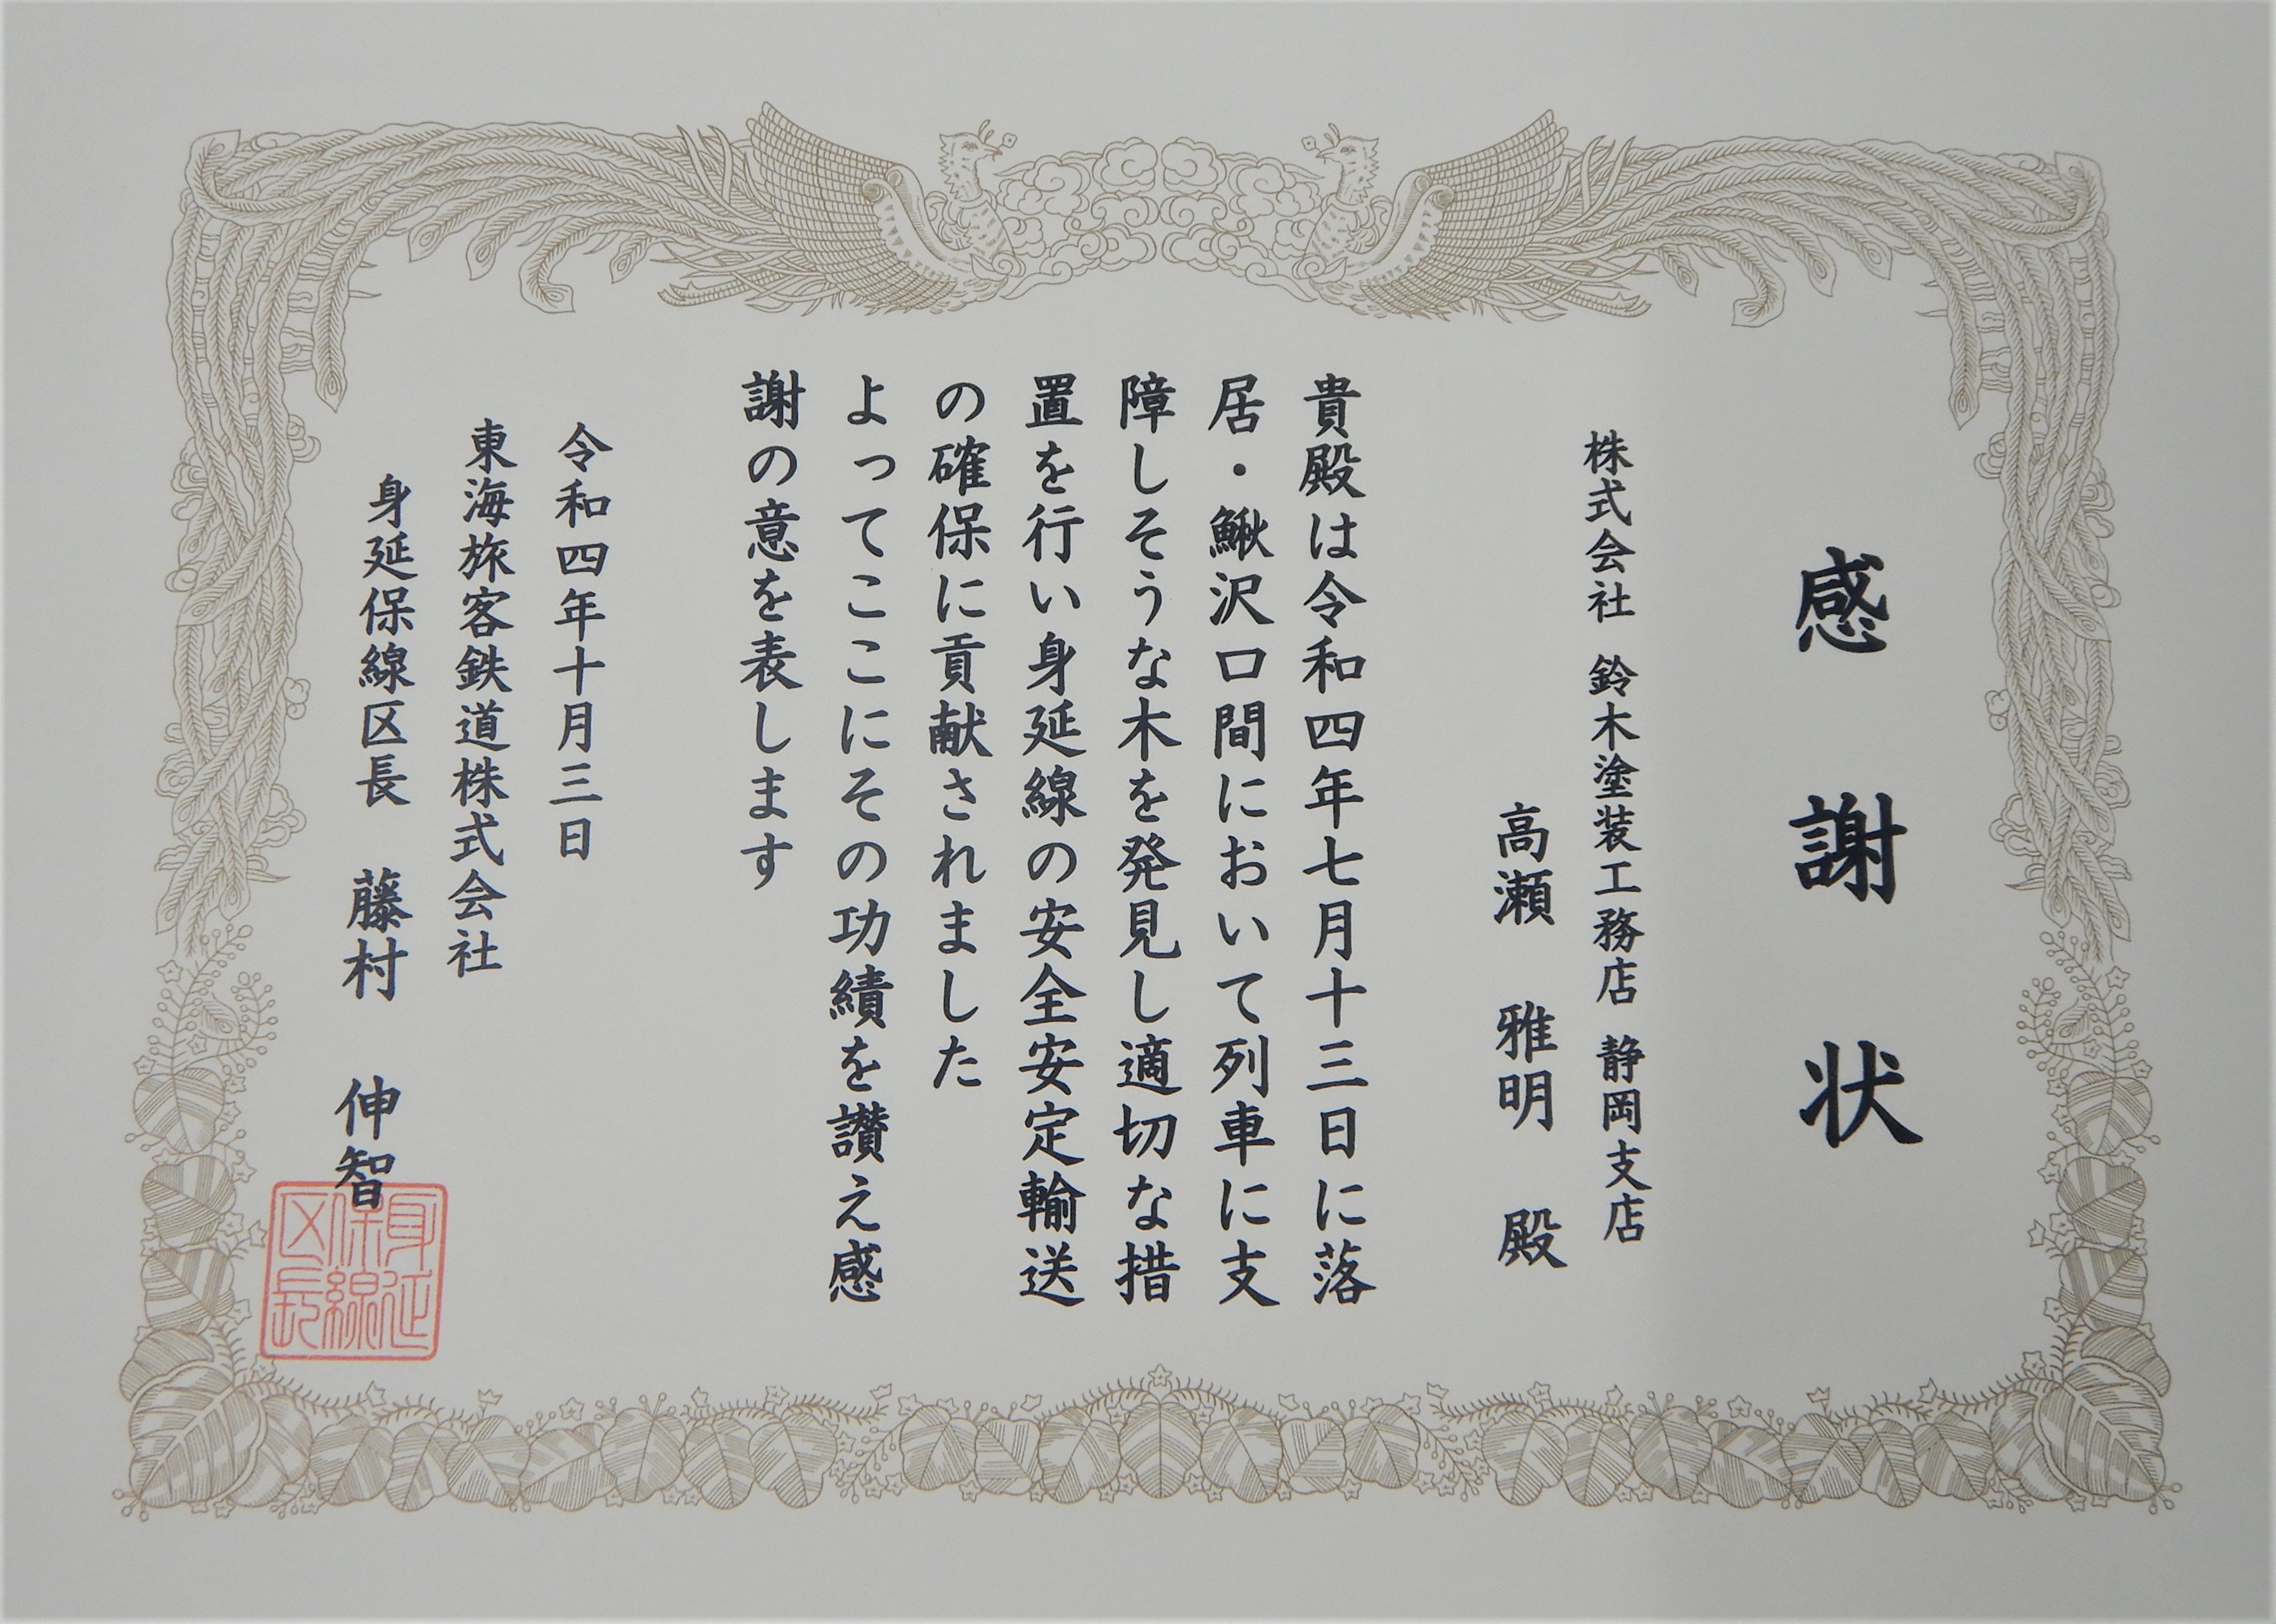 感謝状
株式会社 鈴木塗装工務店 静岡支店
高瀬 雅明 殿
貴殿は令和四年七月十三日に落
居・鰍沢口間において列車に支
障しそうな木を発見し適切な措
置を行い身延線の安全安定輸送
の確保に貢献されました
よってここにその功績を讃え感
謝の意を表します
令和四年十月三日
東海旅客鉄道株式会社
身延保線区長 藤村 伸智
身延
保線
区長